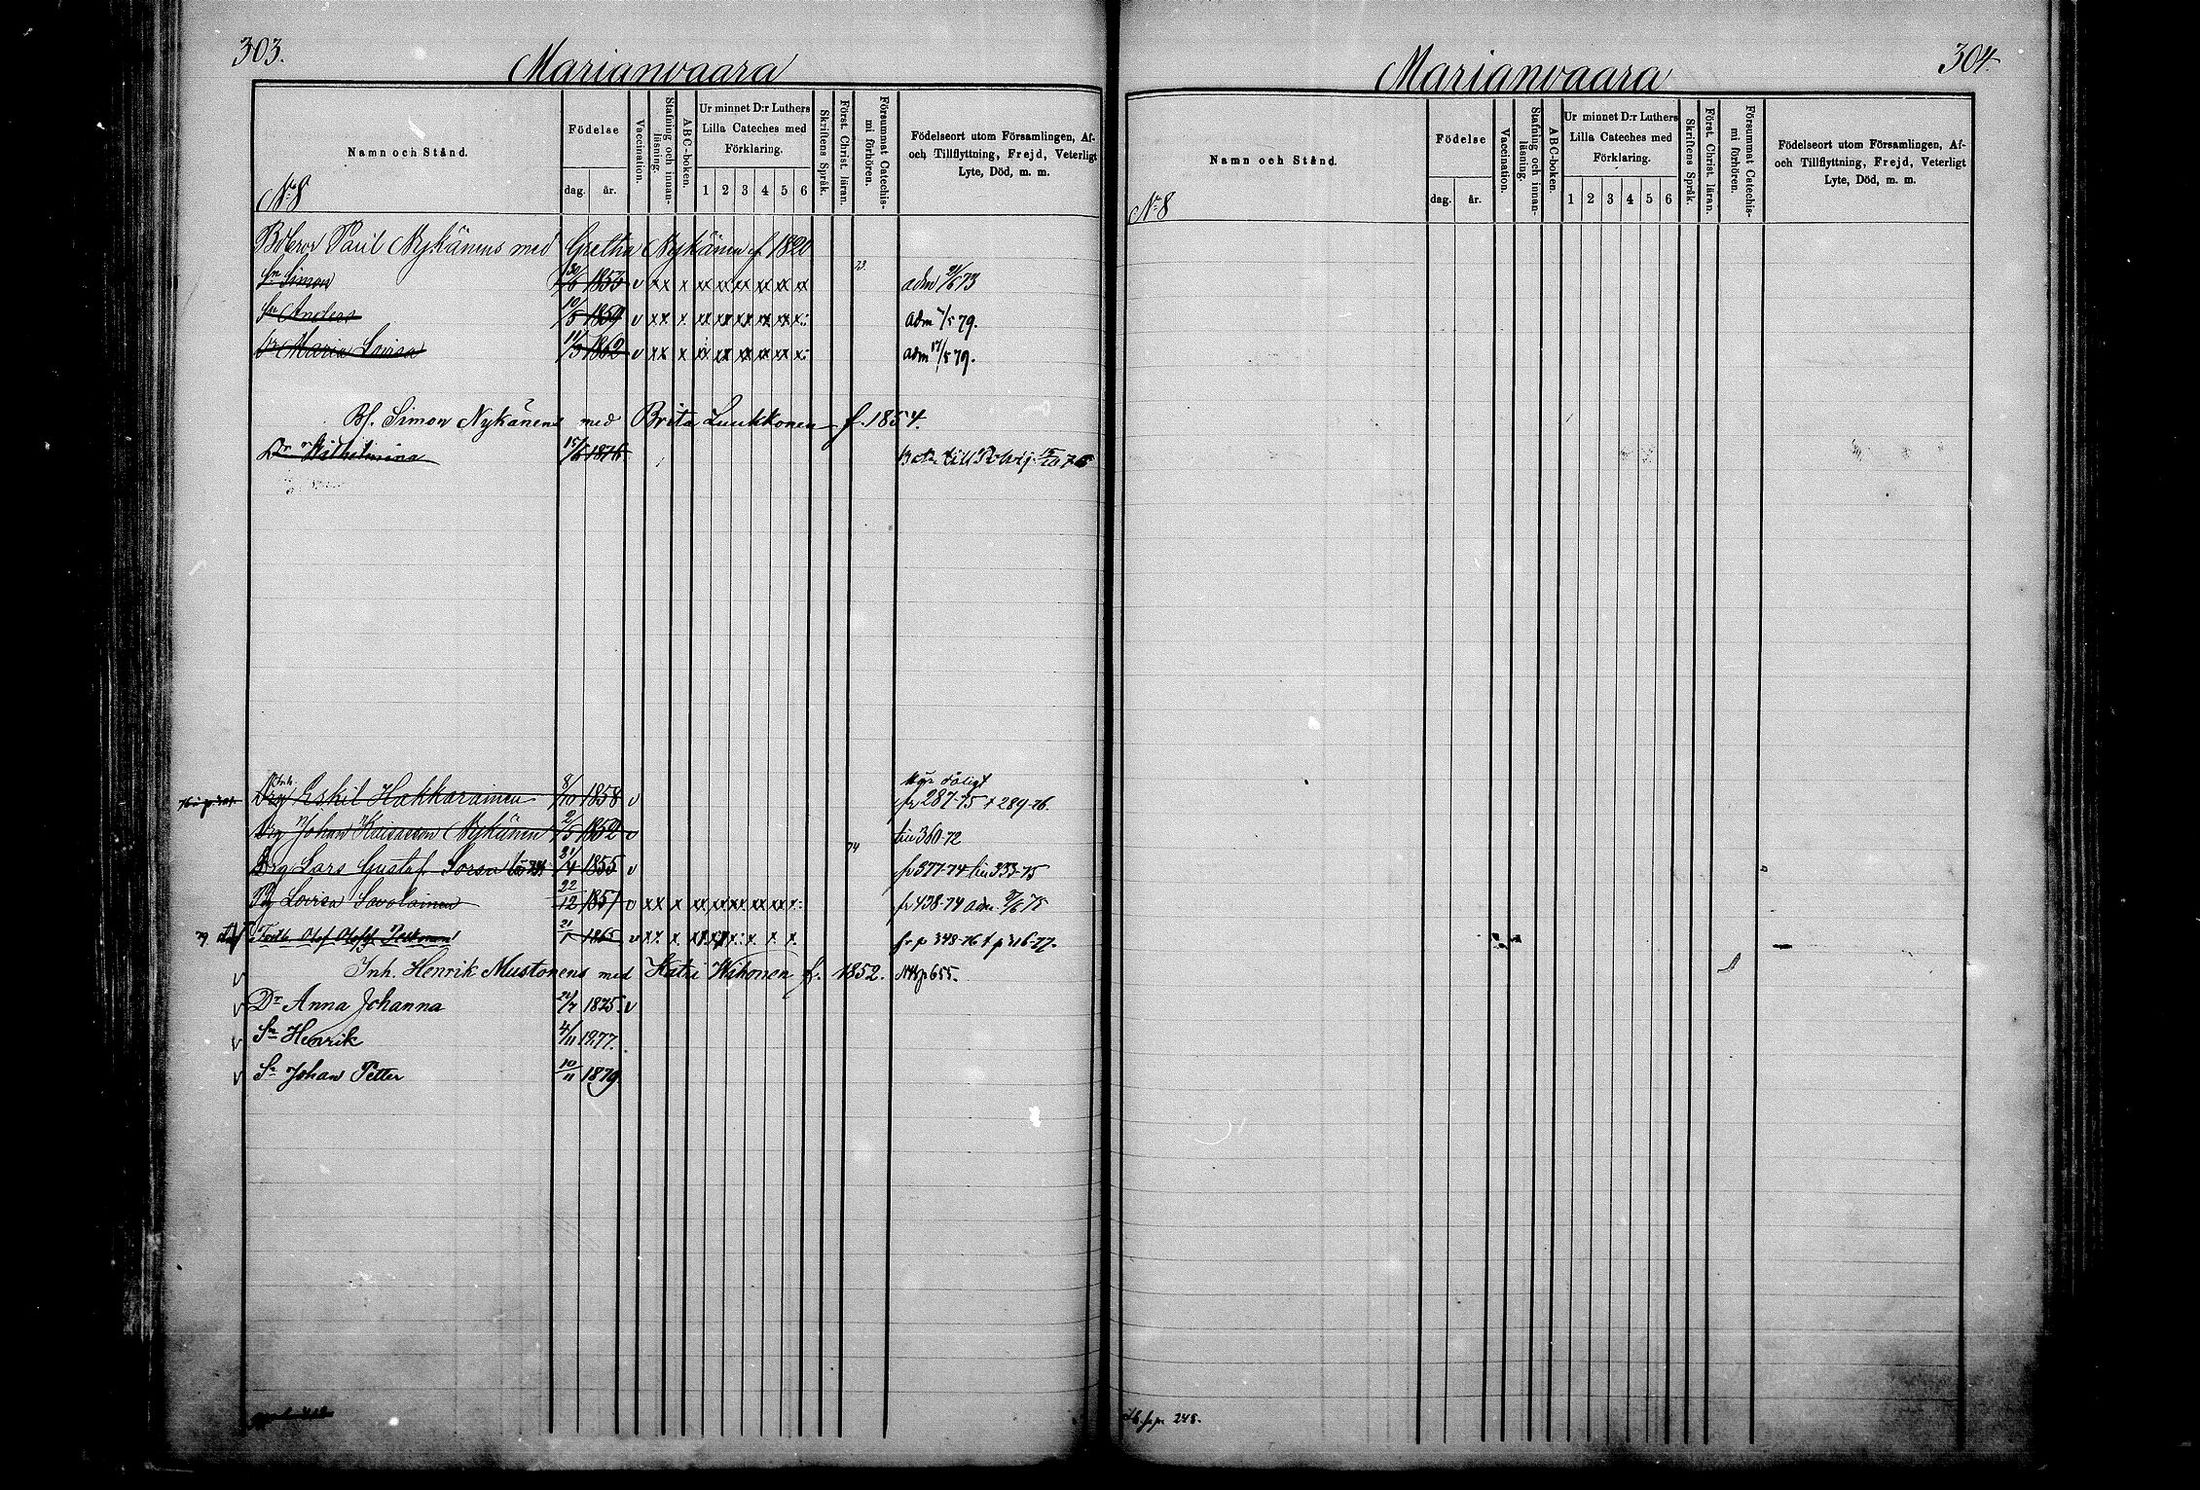 303.
Marianvaara
Namn och Stånd.
Födelse
dag.
år.
Vaccination.
Stafning och innan-
läsning.
ABC-boken.
Ur minnet D:r Luthers
Lilla Cateches med
Förklaring.
1 2 3 4 5 6
Skriftens Språk.
Förest. Christ. läran.
Försummat Catechis-
mi förhören.
Födelseort utom Församlingen, Af-
och Tillflyttning, Frejd, Veterligt
Lyte, Död, m. m.
No 8
Paul Nykänens med Gretha Nykänen f. 1820
Sn Simon 1853 v xx x xx xx xx xx xx xx 73 adm 73
Sn Anders 10/5 1859 v xx x xx xx xx xx xx x: adm 79.
Dr Maria Lovisa 11/3 1862 v xx x xx xx xx xx xx x: adm 17/5 79.
Bf. Simon Nykänens med Brita Luukkonen f. 1854.
Dr Wilhelmina 15/6 1876
Drg Eskil Hakkarainen 8/10 1858 v fr 287-75 t 289-76.
Drg Johan Nykänen 2/5 1852 v till 360-72
74
Drg Lars Gustaf Sorsa 1855 v fr 377-74 till 333-75
Pg Lovisa Savolainen 22/12 1851 v xx x xx xx xx xx xx x: fr 438-74 adm 75
Olof 1865 v x fr p 348-76 t p 316-77.
v Inh. Henrik Mustonens med Katri Wihonen f. 1852. p 655.
v Dr Anna Johanna 1875 v
v Sn Henrik 4/11 1877.
v Sn Johan Petter 10/11 1879
304
Marianvaara
Namn och Stånd.
Födelse
dag.
år.
Vaccination.
Stafning och innan-
läsning.
ABC-boken.
Ur minnet D:r Luthers
Lilla Cateches med
Förklaring.
1 2 3 4 5 6
Skriftens Språk.
Förest. Christ. läran.
Försummat Catechis-
mi förhören.
Födelseort utom Församlingen, Af-
och Tillflyttning, Frejd, Veterligt
Lyte, Död, m. m.
No 8
248.